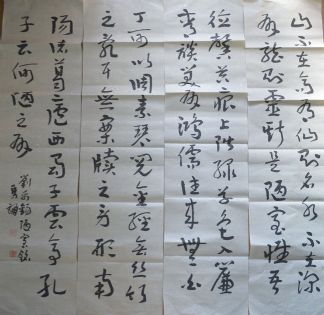 山不在高有仙則名水不在深
有龍則靈斯是陋室惟吾
德馨苔痕上階綠草色入簾
青談笑有鴻儒往來無白
丁可以調素琴閱金經無絲竹
之亂耳無案牘之勞形南
陽諸葛廬西蜀子雲亭孔
子云何陋之有
劉禹錫陋室銘